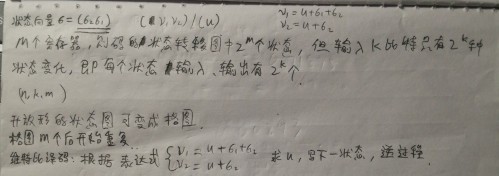 状态向量 σ=(σ₂σ₁) (u v₁ v₂)/(u) v₁=u+σ₁+σ₂
v₂=u+σ₂
m个寄存器,则码的状态转移图中2^m个状态,但输入k比特只有2^k种
状态变化,即每个状态输入、输出有2^k个.
(n,k,m)
开放形的状态图可变成格图.
格图m个后开始重复.
维特比译码:根据表达式{v₁=u+σ₁+σ₂ 求u,写下一状态,逆过程.
v₂=u+σ₂